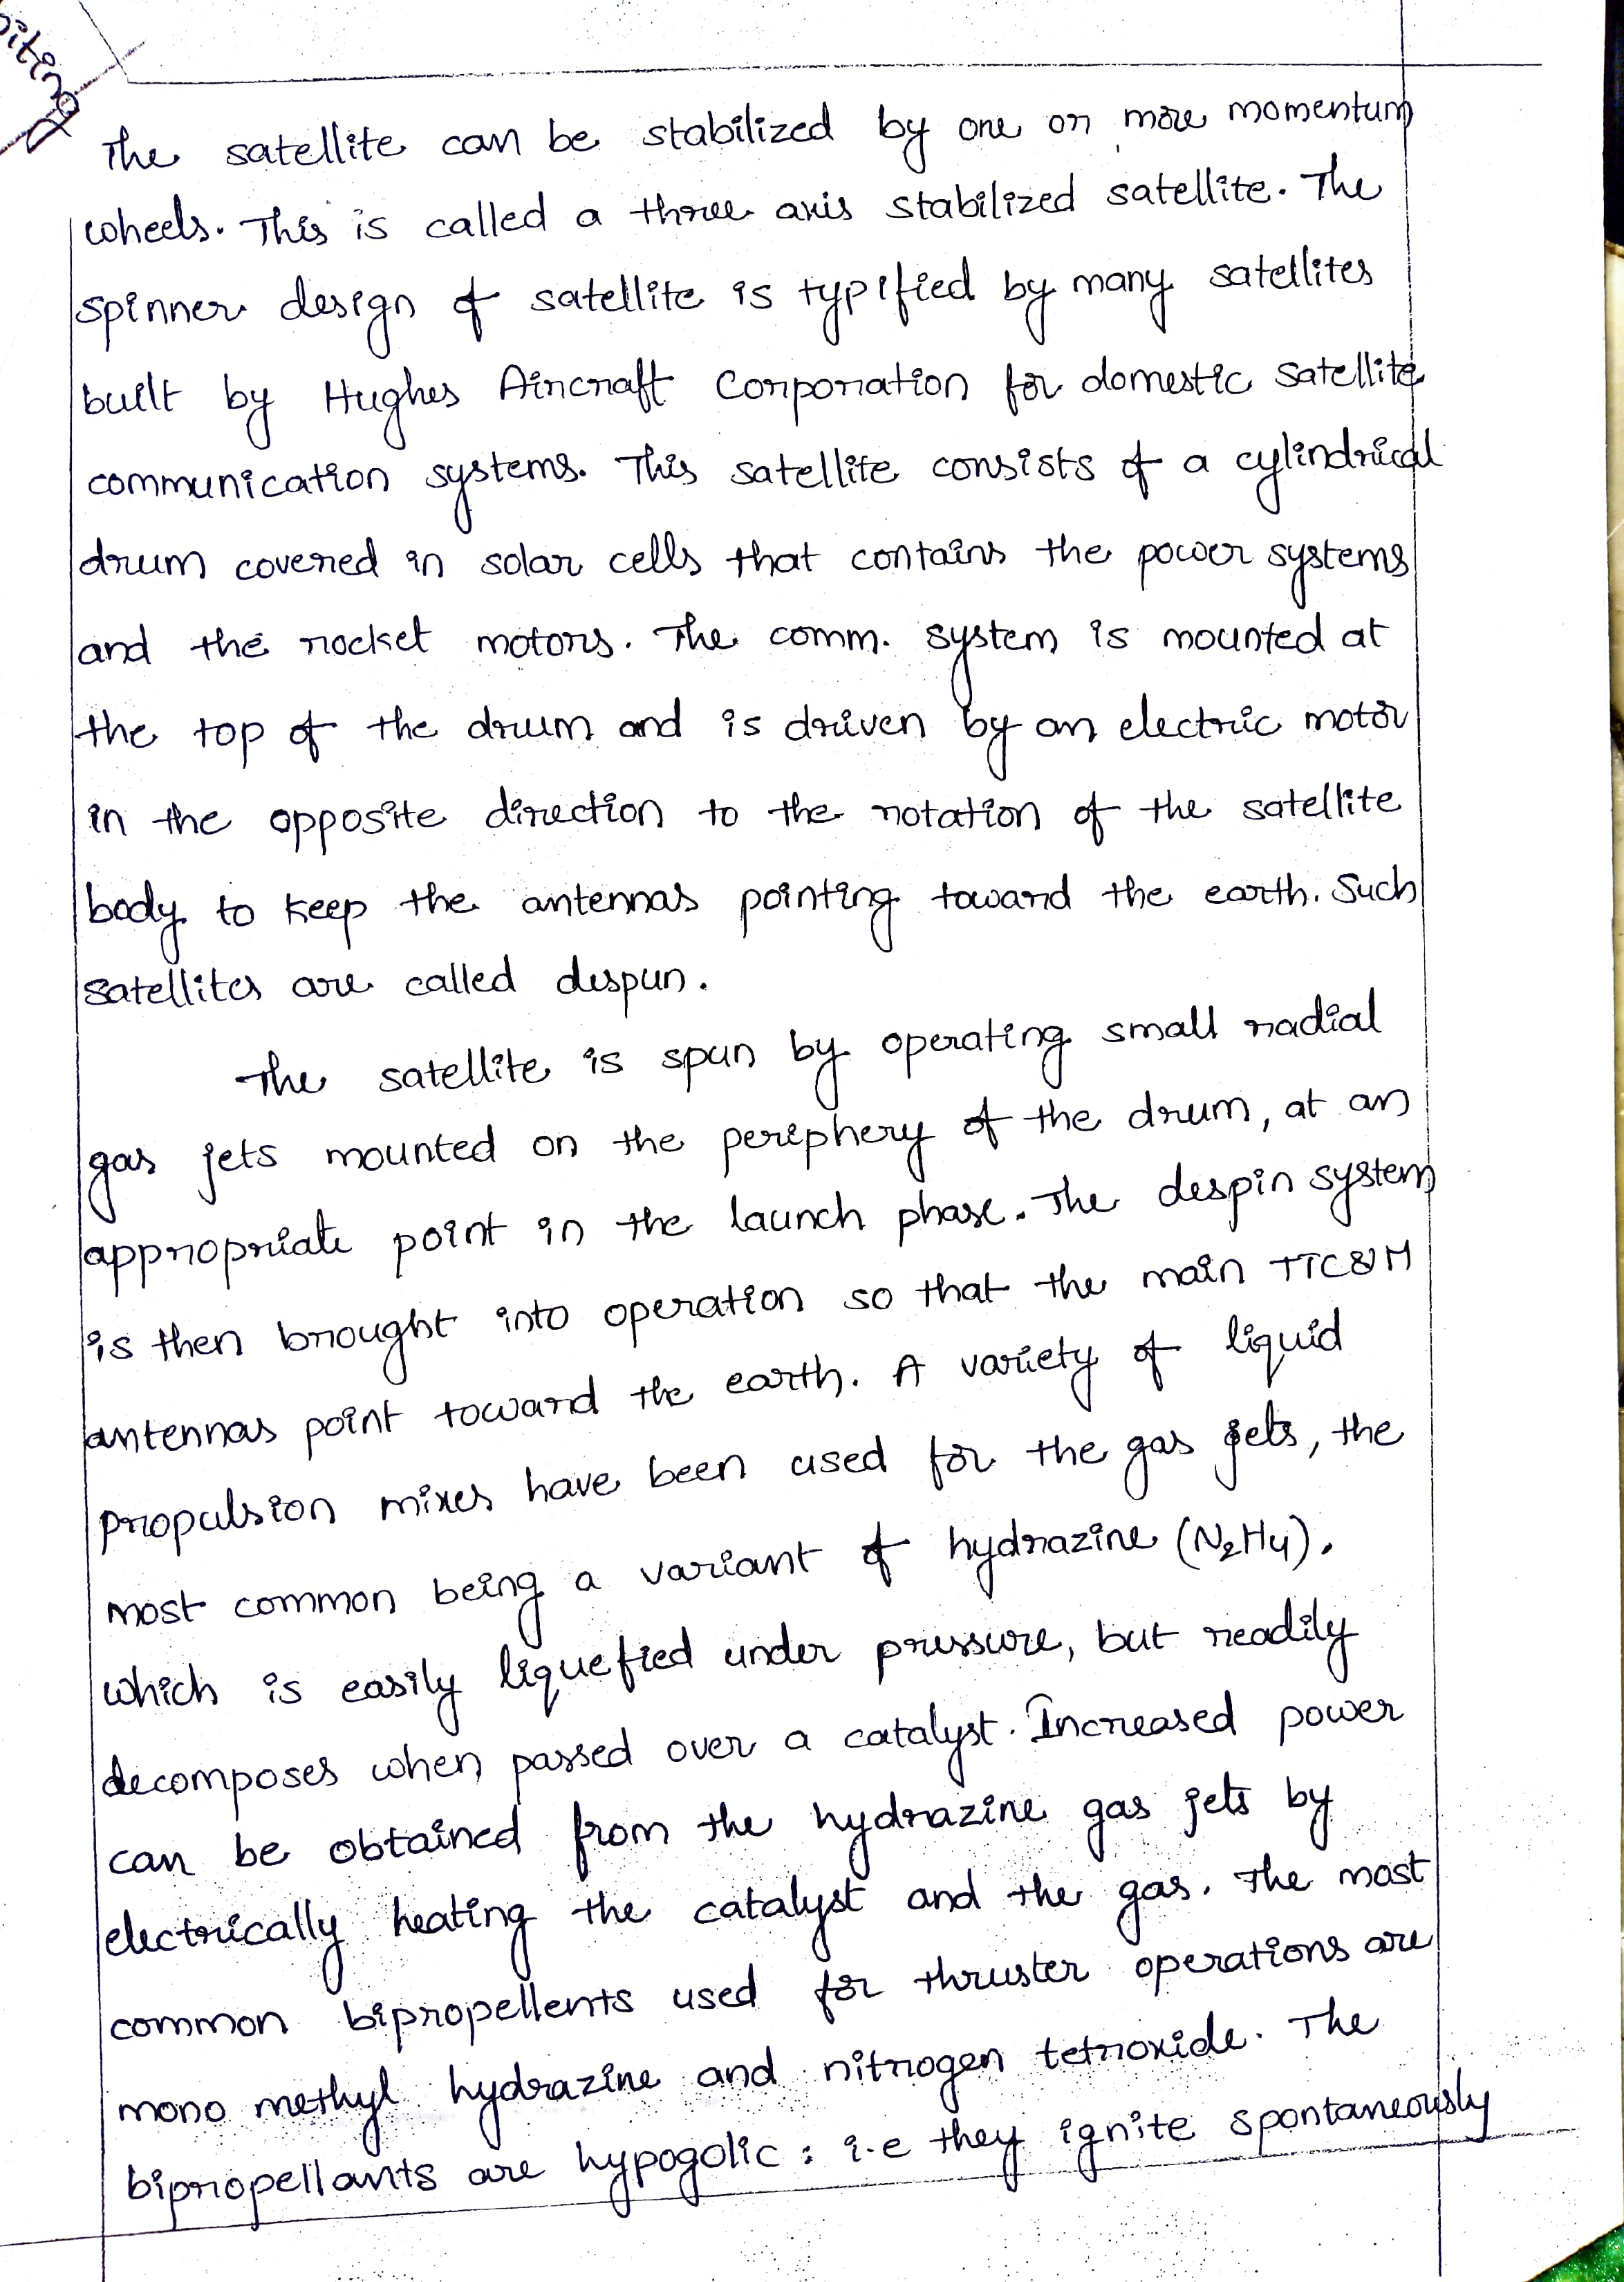 The satellite can be stabilized by one or more momentum
wheels. This is called a three axis stabilized satellite. The
spinner design of satellite is typified by many satellites
built by Hughes Aircraft Corporation for domestic satellite
communication systems. This satellite consists of a cylindrical
drum covered in solar cells that contains the power systems
and the rocket motors. The comm. system is mounted at
the top of the drum and is driven by an electric motor
in the opposite direction to the rotation of the satellite
body to keep the antennas pointing toward the earth. Such
satellites are called despun.
The satellite is spun by operating small radial
gas jets mounted on the periphery of the drum, at an
appropriate point in the launch phase. The despin system
is then brought into operation so that the main TTC&M
antennas point toward the earth. A variety of liquid
propulsion mixes have been used for the gas jets, the
most common being a variant of hydrazine (N2H4).
which is easily liquefied under pressure, but readily
decomposes when passed over a catalyst. Increased power
can be obtained from the hydrazine gas jets by
electrically heating the catalyst and the gas. The most
common bipropellents used for thruster operations are
mono methyl hydrazine and nitrogen tetroxide. The
bipropellants are hypogolic : i.e they ignite spontaneously